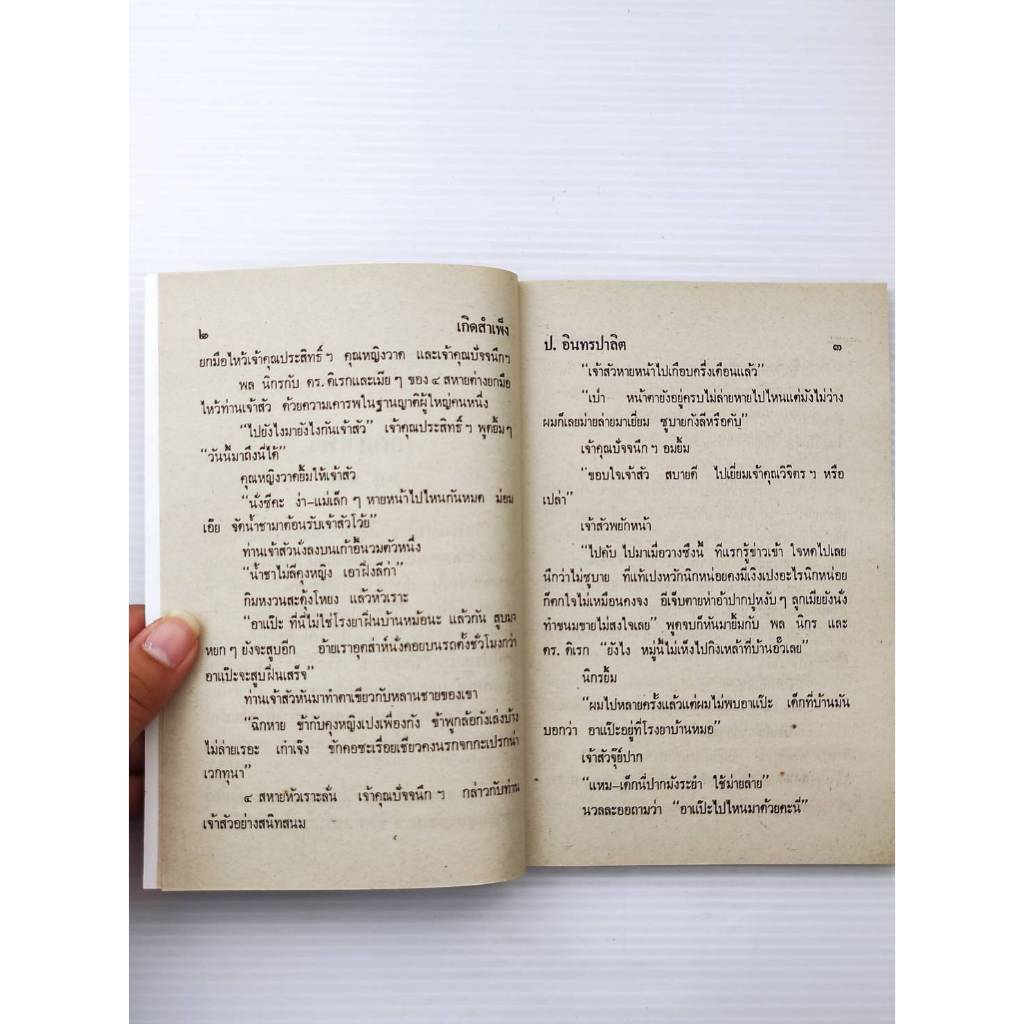 ๒ เกิดสำเพ็ง
ยกมือไหว้เจ้าคุณประสิทธิ์ฯ คุณหญิงวาด และเจ้าคุณปัจจนึกฯ
พล นิกรกับ ดร. ดิเรกและเมีย ๆ ของ ๔ สหายต่างยกมือ
ไหว้ท่านเจ้าสัว ด้วยความเคารพในฐานญาติผู้ใหญ่คนหนึ่ง
“ไปยังไงมายังไงกันเจ้าสัว” เจ้าคุณประสิทธิ์ ฯ พูดยิ้มๆ
“วันนี้มาถึงนี่ได้”
คุณหญิงวาดยิ้มให้เจ้าสัว
“นั่งซีคะ ง่า–แม่เล็ก ๆ หายหน้าไปไหนกันหมด ม่อม
เอ๊ย จัดน้ำชามาต้อนรับเจ้าสัวโว้ย”
ท่านเจ้าสัวนั่งลงบนเก้าอี้นวมตัวหนึ่ง
“น้ำชาไม่ลีคุงหญิง เอาฝิ่งลีก่า”
กิมหงวนสะดุ้งโหยง แล้วหัวเราะ
“อาแป๊ะ ที่นี่ไม่ใช่โรงยาฝิ่นบ้านหม้อนะ แล้วกัน สูบมา
หยก ๆ ยังจะสูบอีก อ้ายเราอุตส่าห์นั่งคอยบนรถตั้งชั่วโมงกว่า
อาแป๊ะจะสูบฝิ่นเสร็จ”
ท่านเจ้าสัวหันมาทำตาเขียวกับหลานชายของเขา
“ฉิกหาย ข้ากับคุงหญิงเปงเพื่องกัง ข้าพูกล้อกังเล่งบ้าง
ไม่ล่ายเรอะ เก๋าเจ๊ง ชักคอซะเรื่อยเชียวคงนรกจกกะเปรกน่า
เวกทุนา”
๔ สหายหัวเราะลั่น เจ้าคุณปัจจนึก ฯ กล่าวกับท่าน
เจ้าสัวอย่างสนิทสนม
ป. อินทรปาลิต ๓
“เจ้าสัวหายหน้าไปเกือบครึ่งเดือนแล้ว”
“เป่า หน้าตายังอยู่ครบไม่ล่ายหายไปไหนแต่มังไม่ว่าง
ผมก็เลยม่ายล่ายมาเยี่ยม ซูบายกังลีหรือคับ”
เจ้าคุณปัจจนึก ฯ อมยิ้ม
“ขอบใจเจ้าสัว สบายดี ไปเยี่ยมเจ้าคุณวิจิตร ฯ หรือ
เปล่า”
เจ้าสัวพยักหน้า
“ไปคับ ไปมาเมื่อวางซึงนี้ ทีแรกรู้ข่าวเข้า ใจหดไปเลย
นึกว่าไม่ซูบาย ที่แท้เปงหวักนิกหน่อยคงมีเงิงเปงอะไรนิกหน่อย
ก็ตกใจไม่เหมือนคงจง อีเจ็บตายห่าอ้าปากปูหงับ ๆ ลูกเมียยังนั่ง
ทำขนมขายไม่สงใจเลย” พูดจบก็หันมายิ้มกับ พล นิกร และ
ดร. ดิเรก “ยังไง หมู่นี้ไม่เห็งไปกิงเหล้าที่บ้านอั๊วเลย”
นิกรยิ้ม
“ผมไปหลายครั้งแล้วแต่ผมไม่พบอาแป๊ะ เด็กที่บ้านมัน
บอกว่า อาแป๊ะอยู่ที่โรงยาบ้านหมอ”
เจ้าสัวจุ๊ย์ปาก
“แหม–เด็กนี่ปากมังระยำ ใช้ม่ายล่าย”
นวลละออถามว่า “อาแป๊ะไปไหนมาด้วยคะนี่”